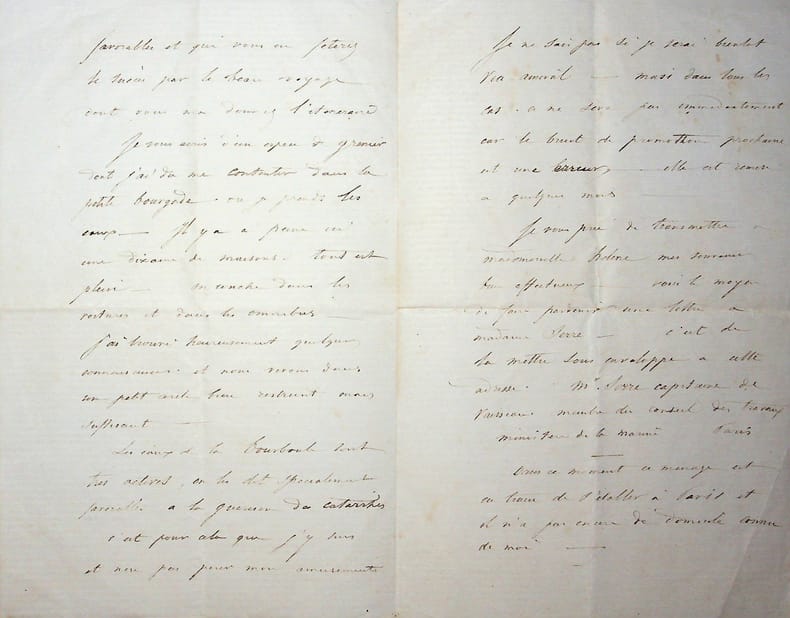 favorables et que vous en feterez
le succès par le beau voyage
dont vous me donnez l'itineraire
Je vous ecris d'un espece de grenier
dont j'ai du me contenter dans la
petite bourgade. ou je prends les
eaux — Il y a a peine ici
une dixaine de maisons. tout est
plein — on couche dans les
voitures et dans les omnibus —
J'ai trouvé heureusement quelques
connaissances. et nous vivons dans
un petit cercle bien restreint mais
suffisant —
Les eaux de la Bourboule sont
très actives, on les dit specialement
favorables a la guerison des catarrhes
c'est pour cela que j'y suis
et non pas pour mon amusement
Je ne sais pas si je serai bientot
vice amiral — mais dans tous les
cas. ce ne sera pas immediatement
car le bruit de promotion prochaine
est une erreur, — elle est remise
a quelques mois —
Je vous prie de transmettre a
mademoiselle Helène mes souvenirs
bien affectueux — voici le moyen
de faire parvenir une lettre a
madame Serre — c'est de
la mettre sous enveloppe a cette
adresse. Mr. Serre capitaine de
vaisseau. membre du conseil des travaux
ministere de la marine Paris
Dans ce moment ce menage est
en train de s'installer à Paris et
il n'a pas encore de domicile connu
de moi —